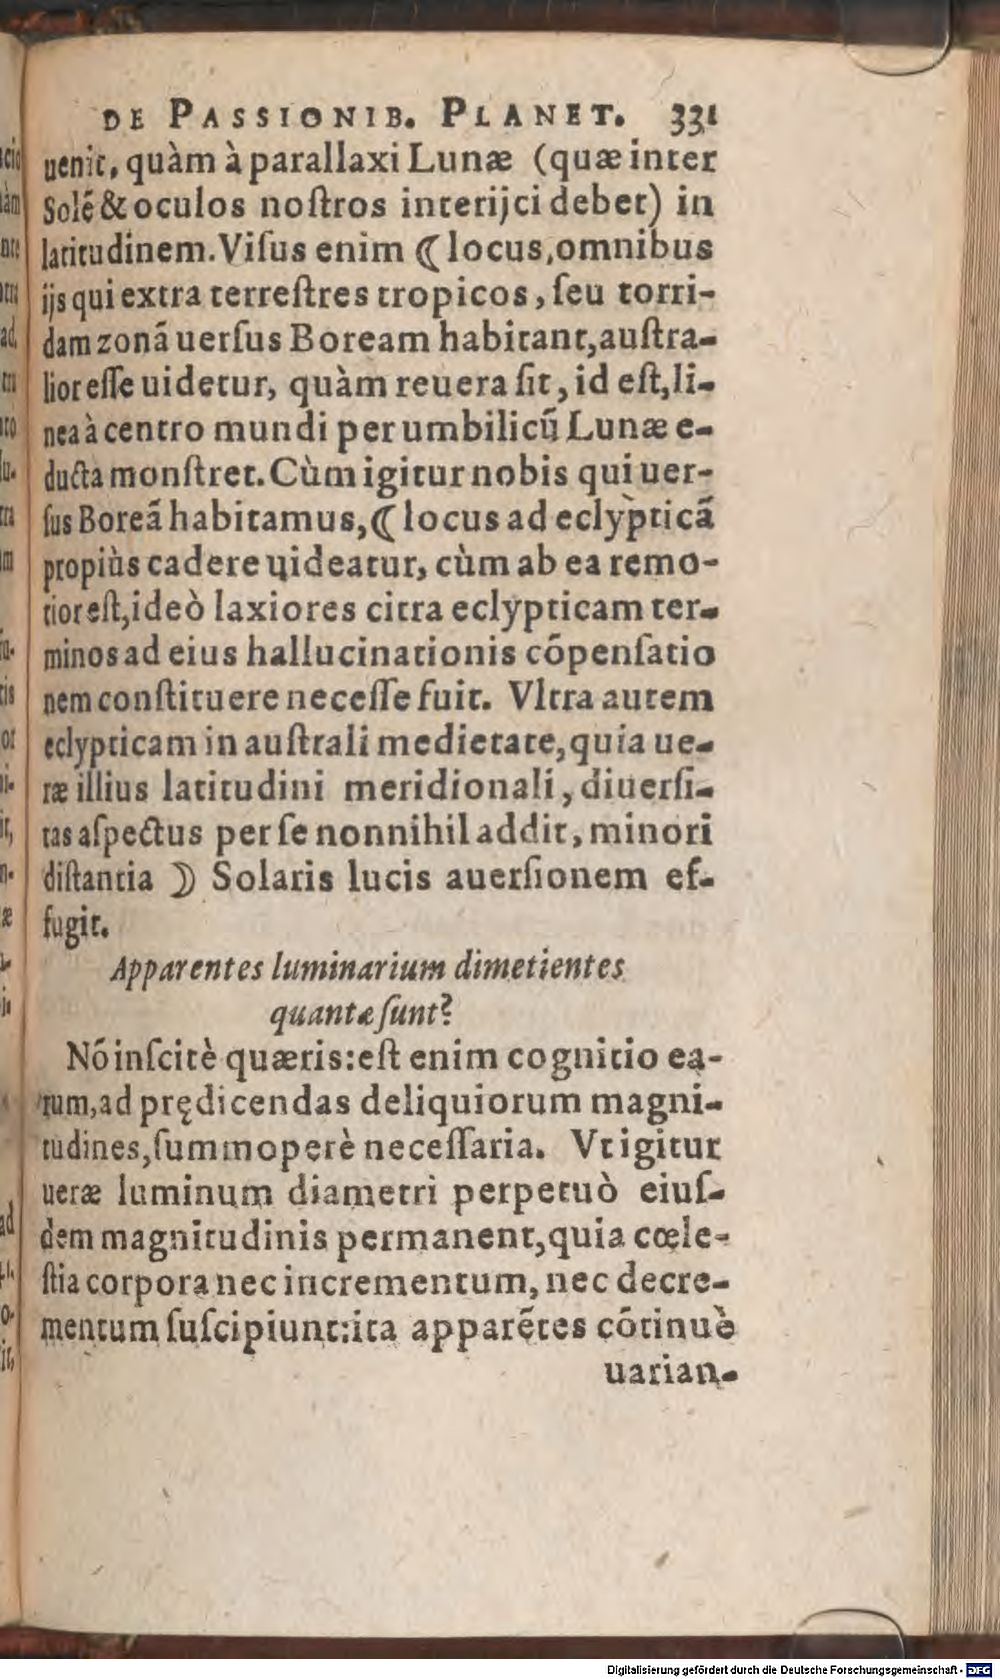 DE PASSIONIB. PLANET. 331
uenit, quàm à parallaxi Lunæ (quæ inter
Solẽ & oculos noſtros interijci debet) in
latitudinem. Viſus enim ☾ locus, omnibus
ijs qui extra terreſtres tropicos, ſeu torri-
dam zonã uerſus Boream habitant, auſtra-
lior eſſe uidetur, quàm reuera ſit, id eſt, li-
nea à centro mundi per umbilicũ Lunæ e-
ducta monſtret. Cùm igitur nobis qui uer-
ſus Boreã habitamus, ☾ locus ad eclypticã
propiùs cadere uideatur, cùm ab ea remo-
tior eſt, ideò laxiores citra eclypticam ter-
minos ad eius hallucinationis cõpenſatio
nem conſtituere neceſſe fuit. Vltra autem
eclypticam in auſtrali medietate, quia ue-
ræ illius latitudini meridionali, diuerſi-
tas aſpectus per ſe nonnihil addit, minori
diſtantia ☽ Solaris lucis auerſionem ef-
fugit.
Apparentes luminarium dimetientes
quantæ ſunt?
Nõ inſcitè quæris: eſt enim cognitio ea-
rum, ad prędicendas deliquiorum magni-
tudines, ſummoperè neceſſaria. Vt igitur
ueræ luminum diametri perpetuò eiuſ-
dem magnitudinis permanent, quia cœle-
ſtia corpora nec incrementum, nec decre-
mentum ſuſcipiunt: ita apparẽtes cõtinuè
uarian-
Digitalisierung gefördert durch die Deutsche Forschungsgemeinschaft - DFG